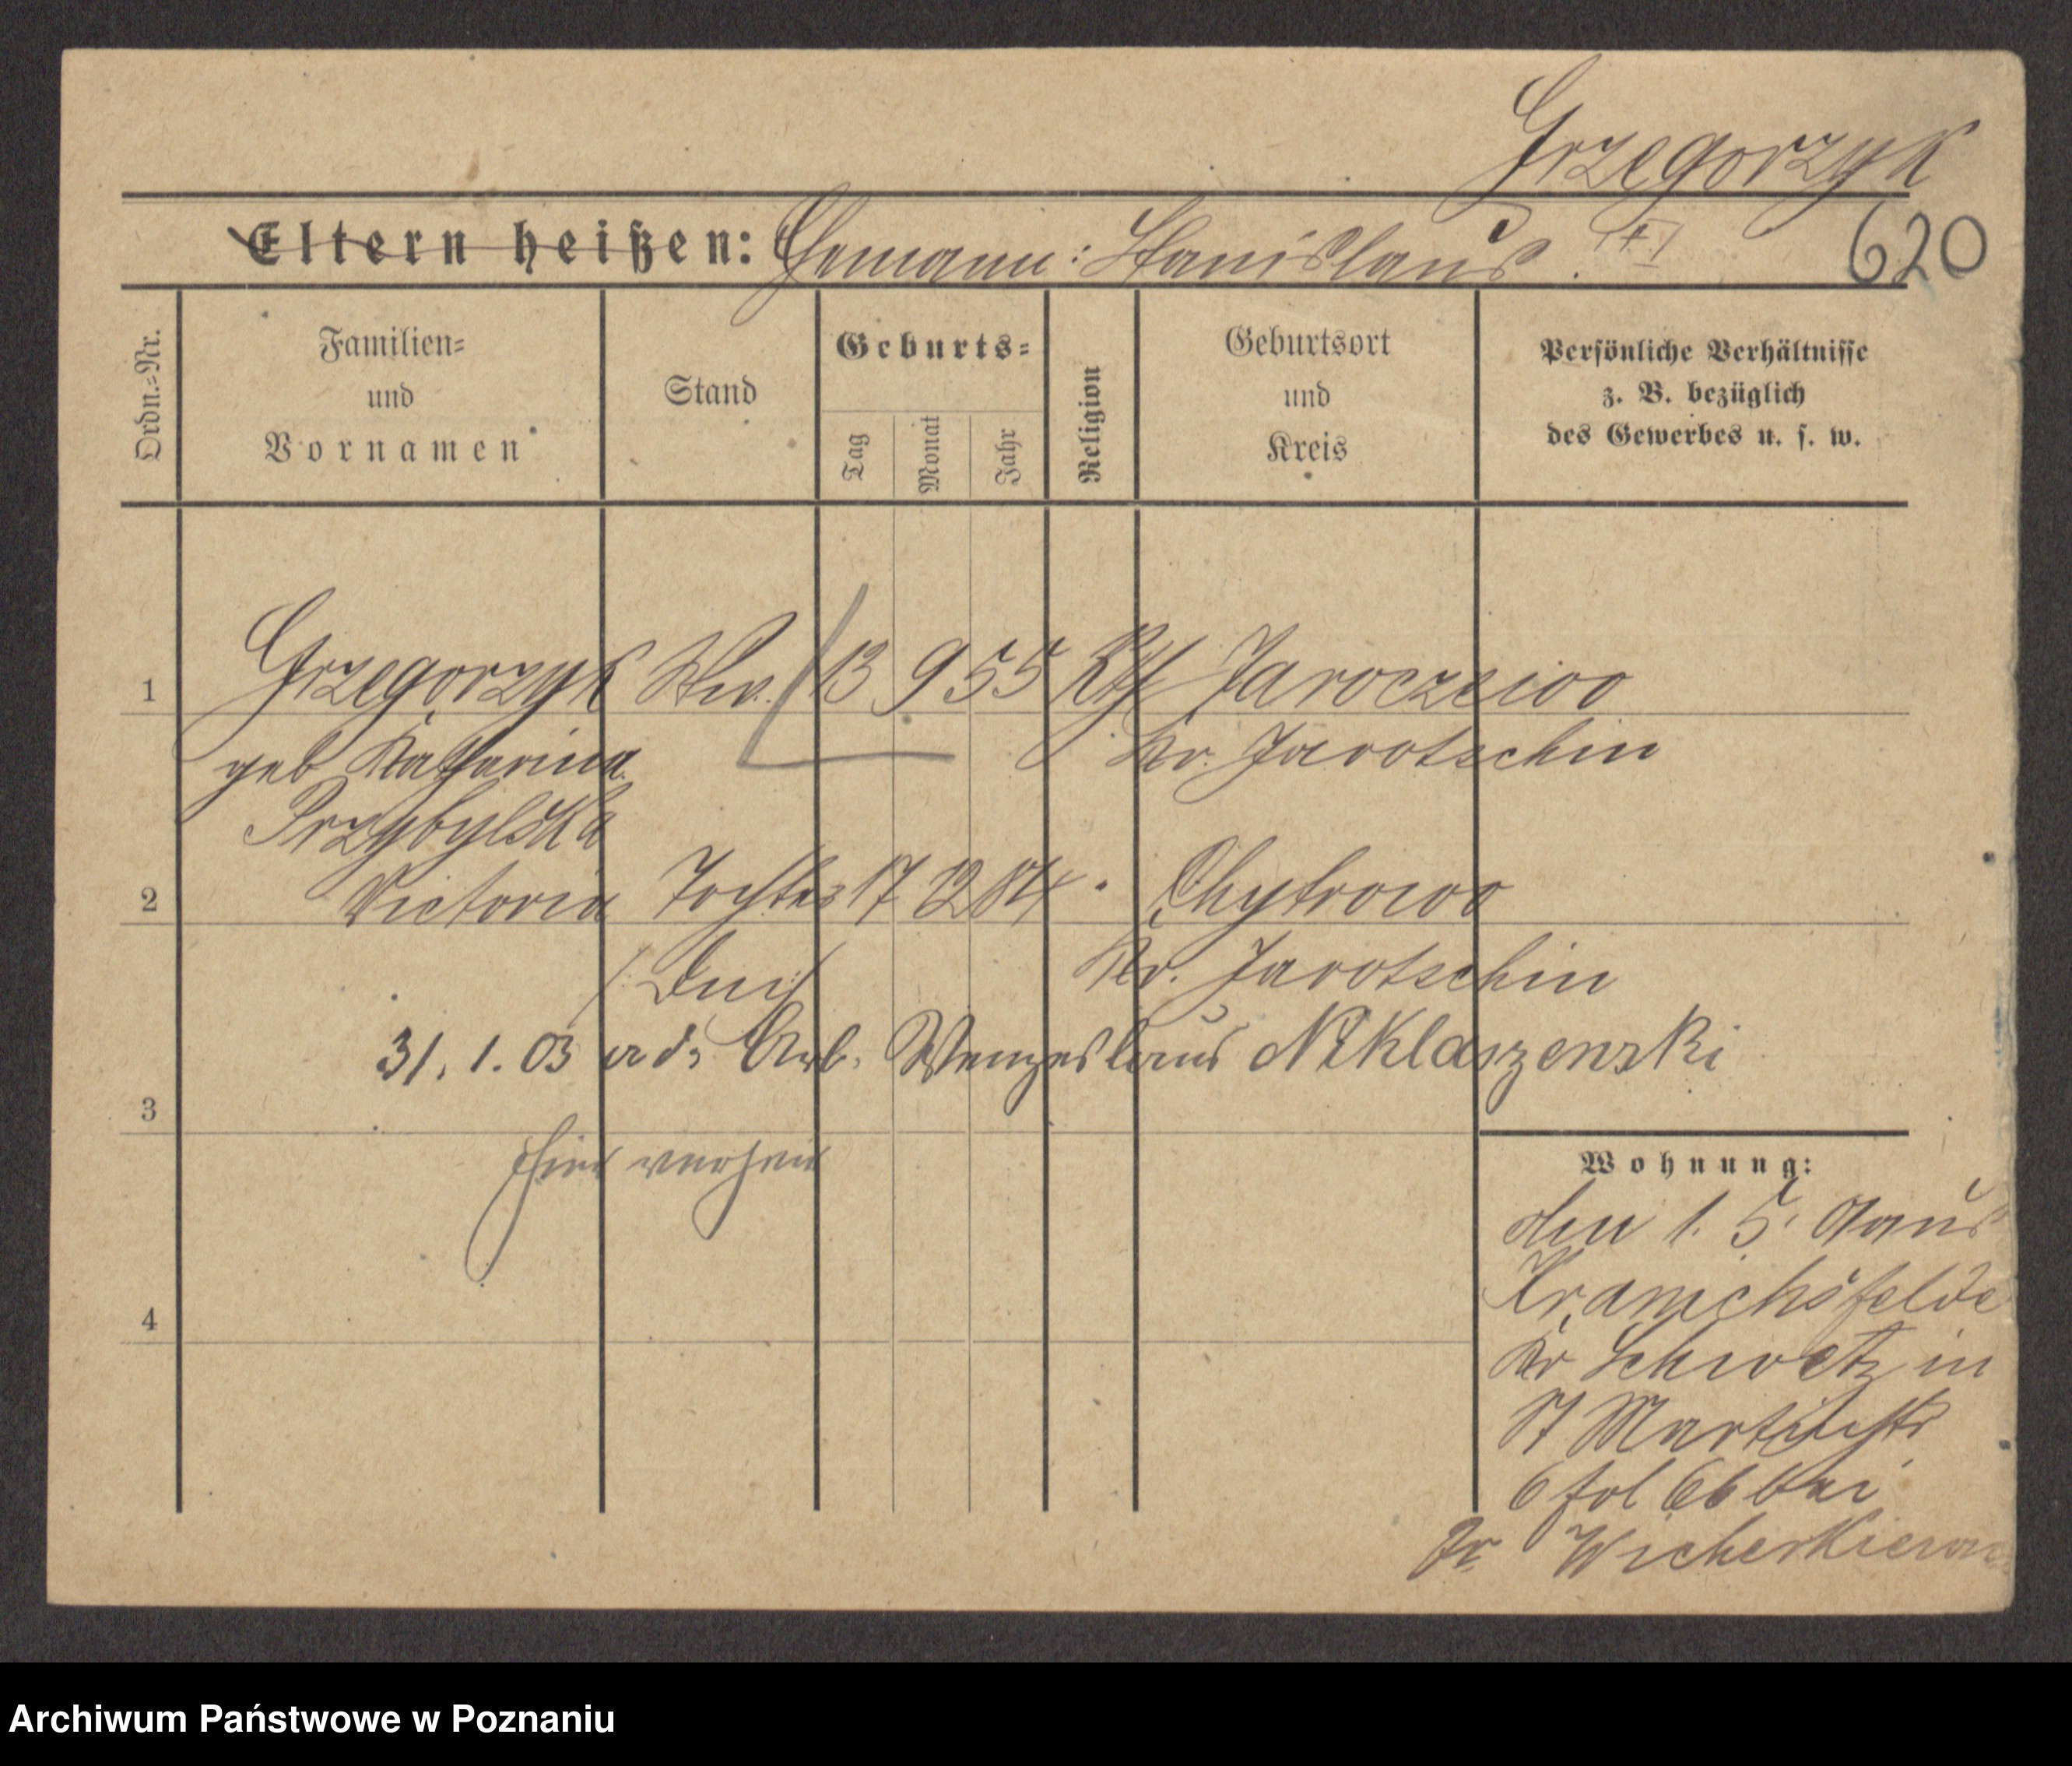 Grzegorzyk
Eltern heißen: Ehemann: Stanislaus. [+]
620
Ordn.-Nr.
Familien-
und
Vornamen
Stand
Geburts-
Tag
Monat
Jahr
Religion
Geburtsort
und
Kreis
Persönliche Verhältnisse
z. B. bezüglich
des Gewerbes u. s. w.
1 Grzegorzyk Ww. 13 9 55 Kth Jaroczewo
geb Katharina Kr. Jarotschin
Przybylska
2 Victoria Tochter 17 12 84 " Chytrowo
Kr. Jarotschin
31. 1. 03 a d. Arb. Wenzeslaus Niklaszewski
3
hier verheir
Wohnung:
den 1. 5. aus
4
Kranichsfelde
Kr Schwetz in
St Martinstr
6 bei
Fr. Wicherkiewi
Archiwum Państwowe w Poznaniu